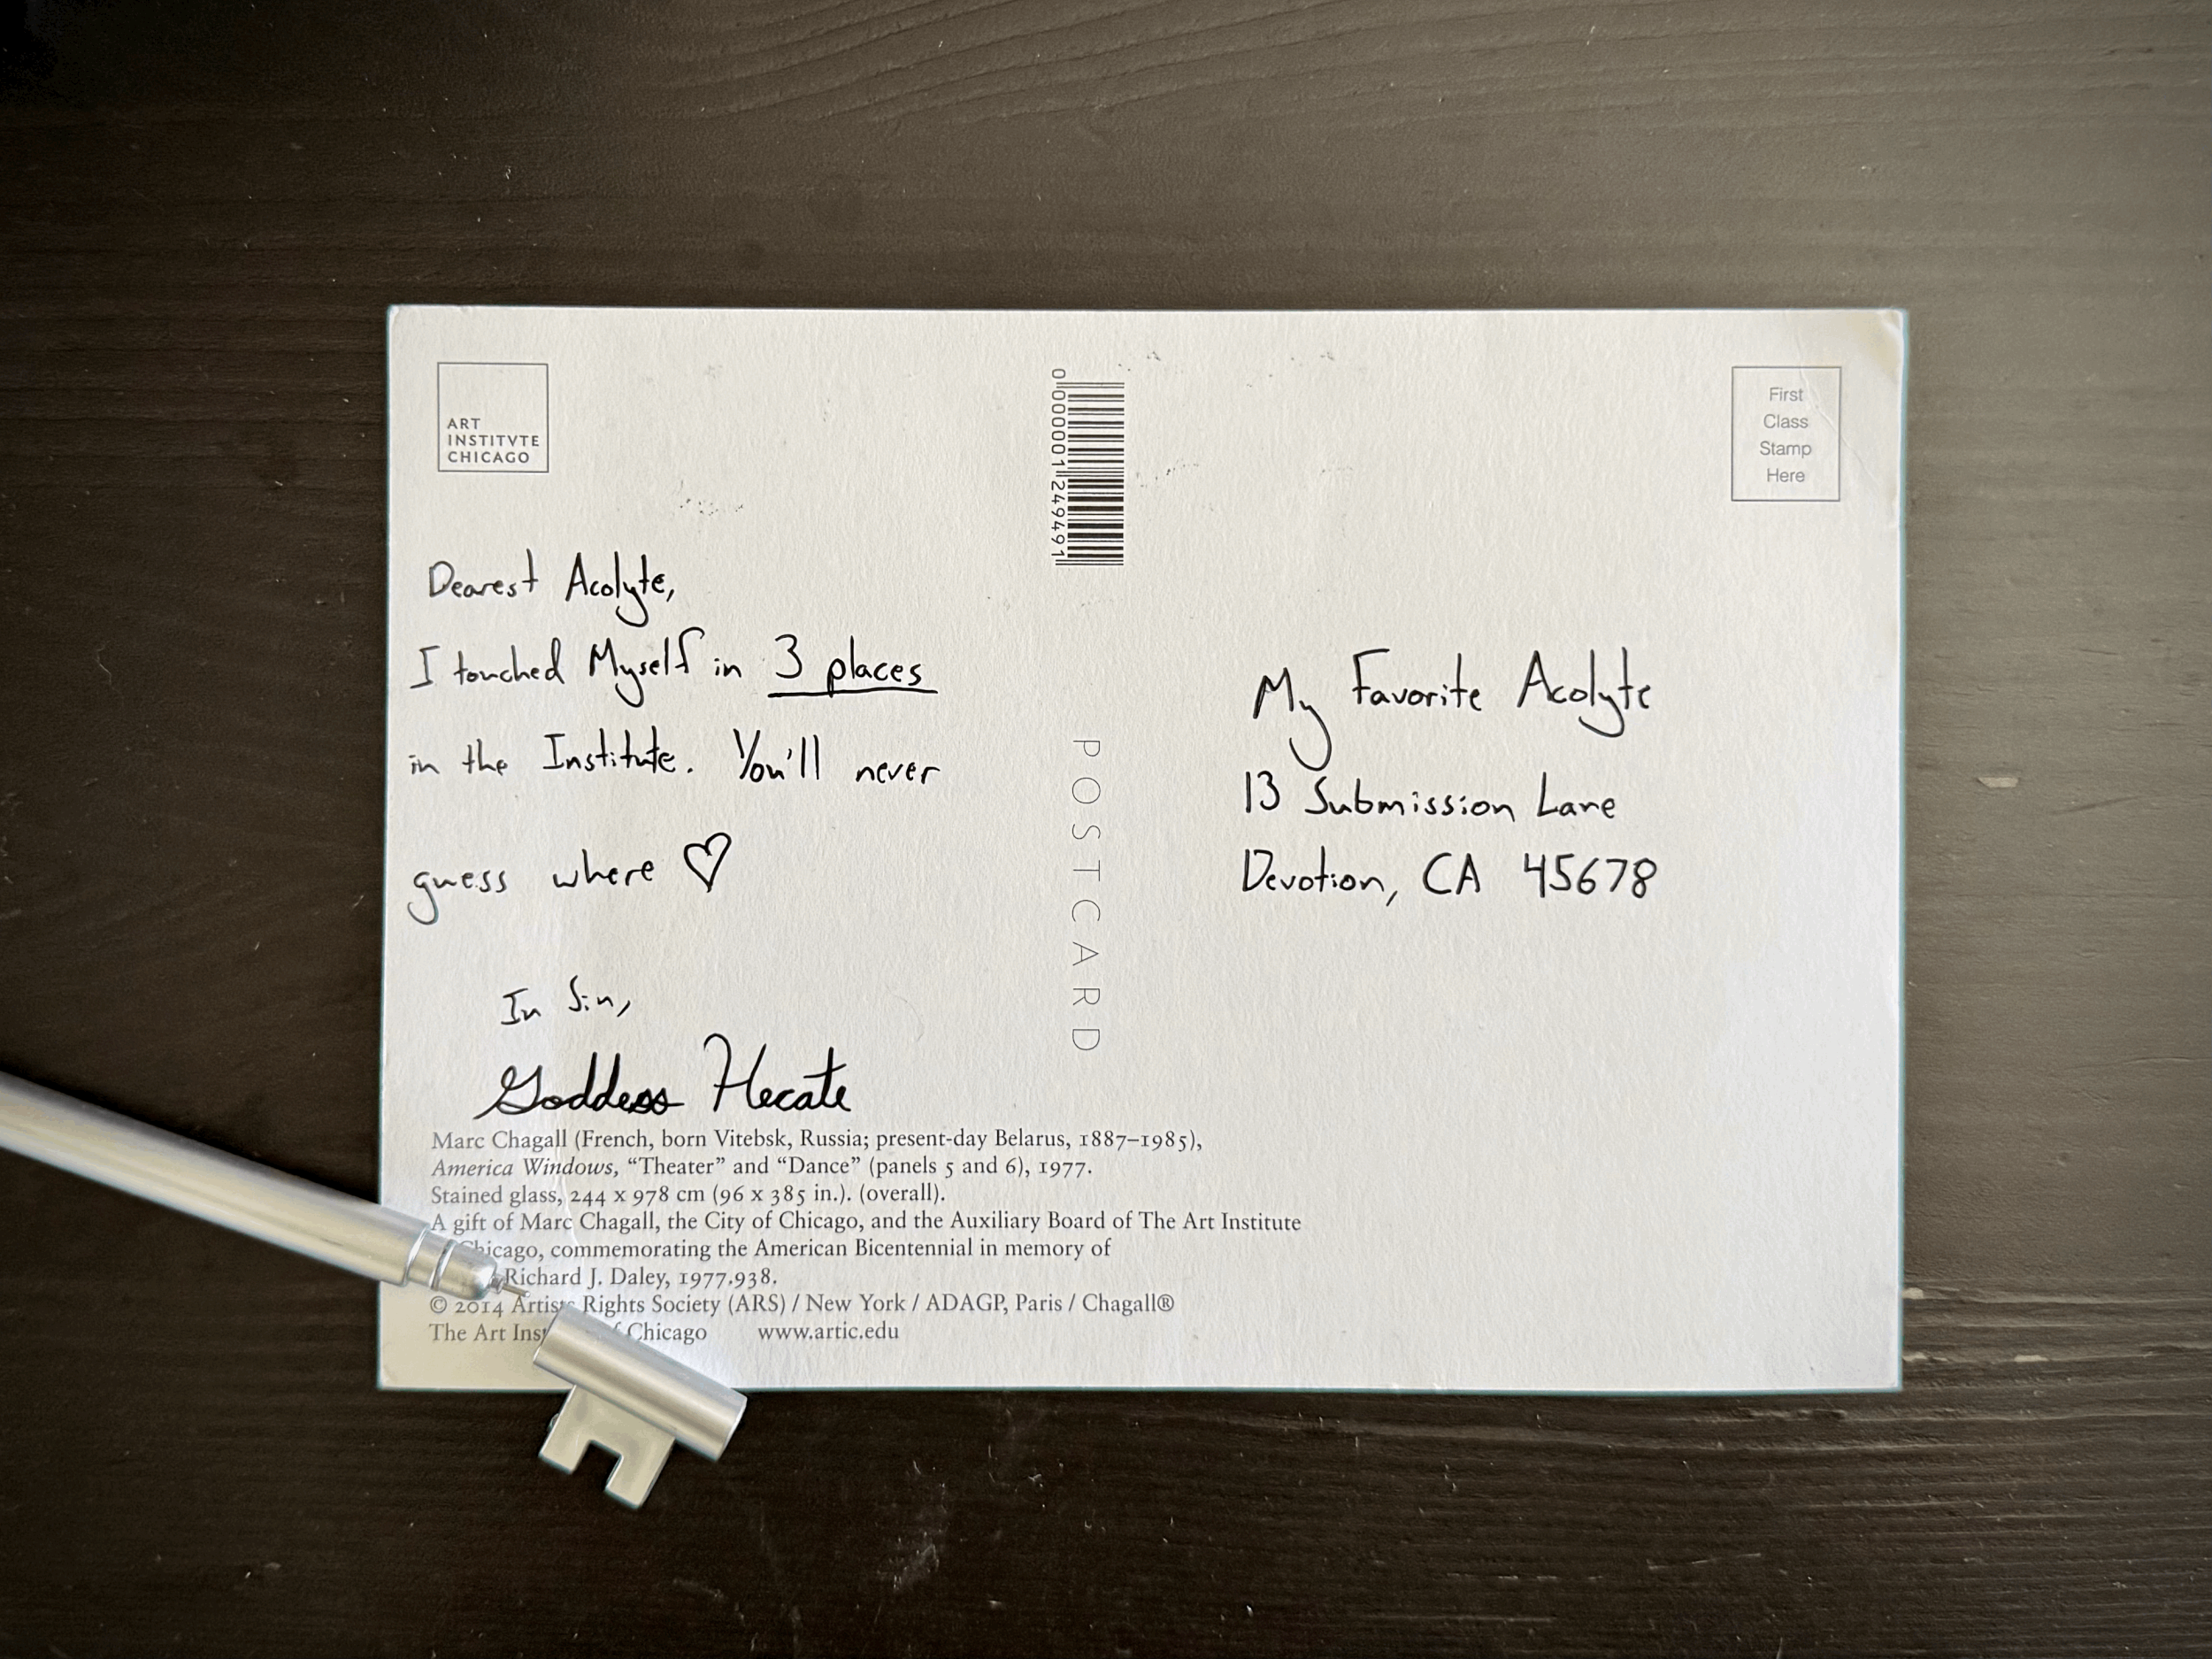 ART
INSTITVTE
CHICAGO
Dearest Acolyte,
I touched Myself in 3 places
in the Institute. You'll never
guess where ♡
In Sin,
Goddess Hecate
Marc Chagall (French, born Vitebsk, Russia; present-day Belarus, 1887–1985),
America Windows, “Theater” and “Dance” (panels 5 and 6), 1977.
Stained glass, 244 x 978 cm (96 x 385 in.). (overall).
A gift of Marc Chagall, the City of Chicago, and the Auxiliary Board of The Art Institute
Chicago, commemorating the American Bicentennial in memory of
Richard J. Daley, 1977.938.
© 2014 Artists Rights Society (ARS) / New York / ADAGP, Paris / Chagall®
The Art Inst of Chicago www.artic.edu
0 000001 249491
POSTCARD
First
Class
Stamp
Here
My Favorite Acolyte
13 Submission Lane
Devotion, CA 45678